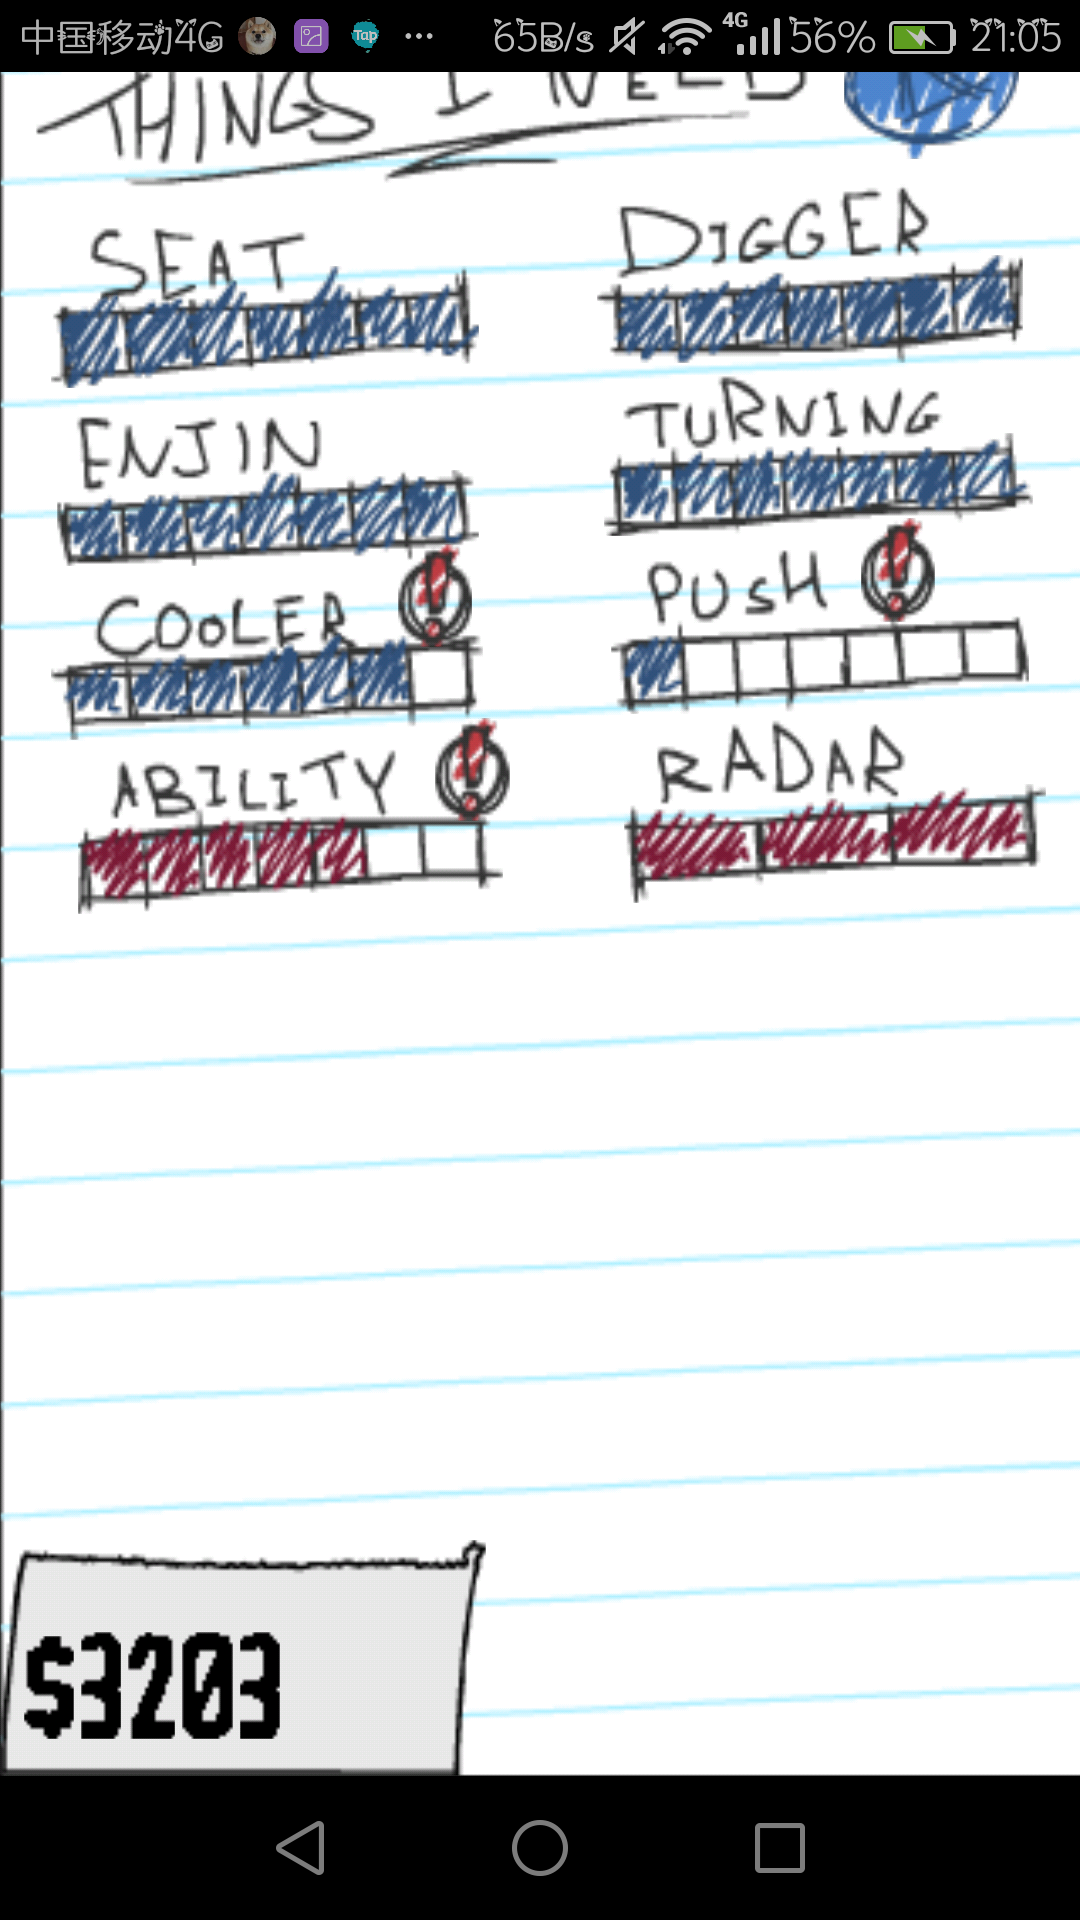 中国移动4G Tap ... 65B/s 4G 56% 21:05
THINGS I NEED
SEAT DIGGER
ENJIN TURNING
COOLER ! PUSH !
ABILITY ! RADAR
$3203